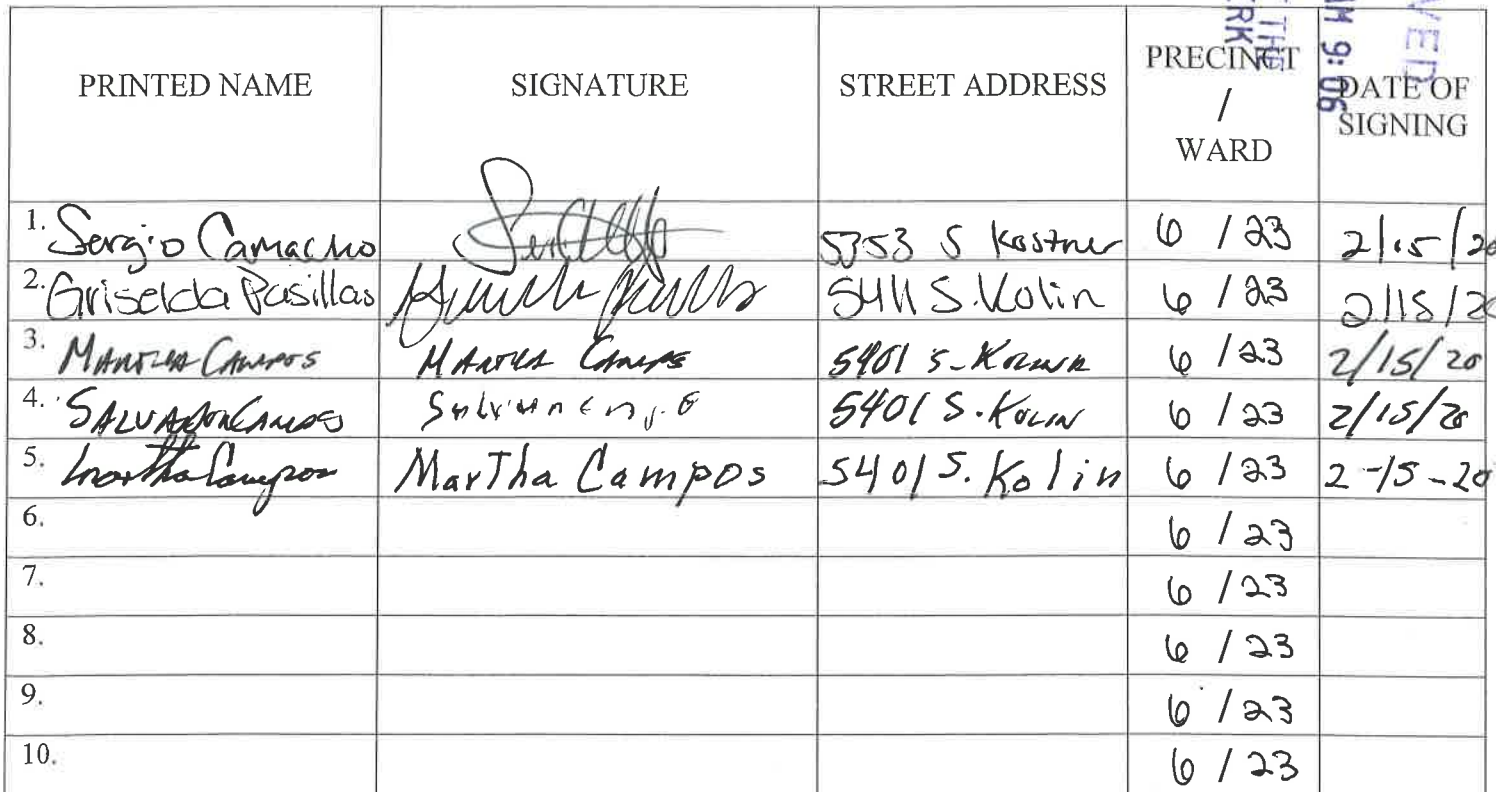 PRINTED NAME SIGNATURE STREET ADDRESS PRECINCT / WARD DATE OF SIGNING
VED
AM 9:06
THE
ERK
1. Sergio Camacho 5353 S Kostner 6 / 23 2/15/20
2. Griselda Pasillas 5411 S. Kolin 6 / 23 2/15/20
3. MARTHA CAMPOS MARTHA CAMPOS 5401 S. KOLIN 6 / 23 2/15/20
4. SALVADOR CAMPOS 5401 S. KOLIN 6 / 23 2/15/20
5. Martha Campos MarTha Campos 5401 S. Kolin 6 / 23 2-15-20
6. 6 / 23
7. 6 / 23
8. 6 / 23
9. 6 / 23
10. 6 / 23